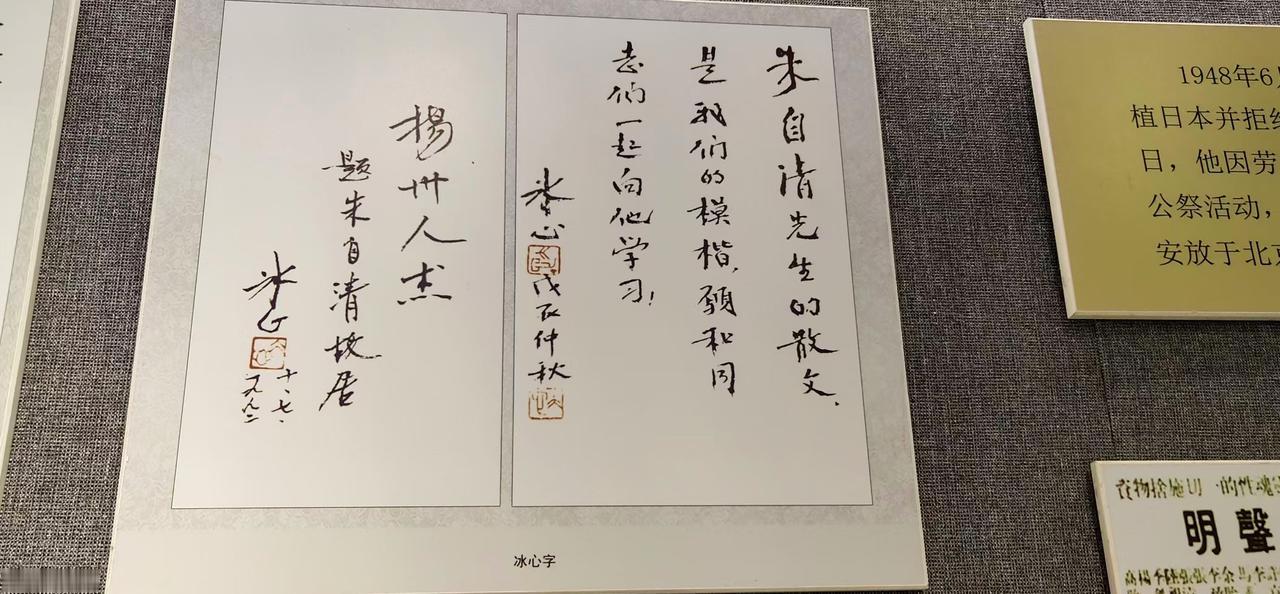 朱自清先生的散文，
是我们的模楷，愿和同
志们一起向他学习！
冰心
戊辰仲秋
揚州人杰
题朱自清故居
冰心
十、七、
一九九二
冰心字
1948年6月
植日本并拒绝
日，他因劳
公祭活动，
安放于北京
資物捨施切一的性魂
明聲